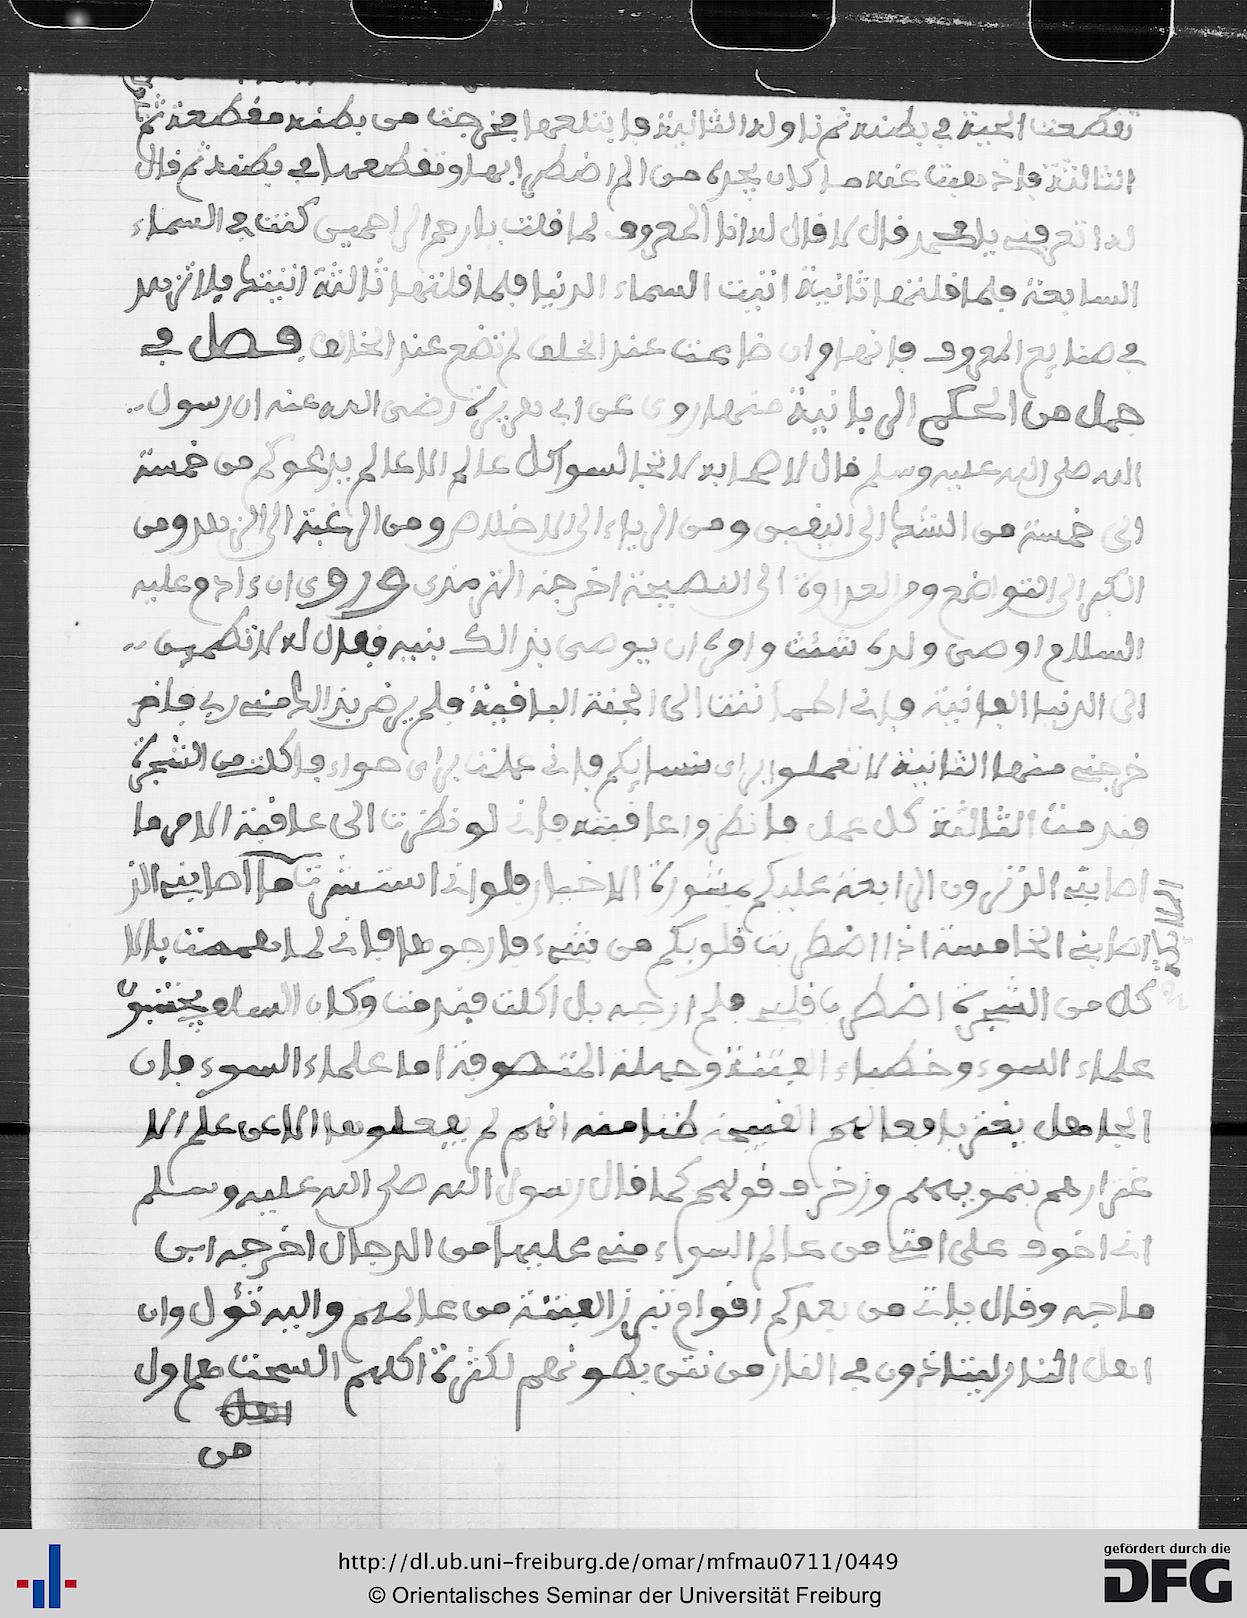 تقطعت الحية في بطنه ثم ناوله الثانية فابتلعها فخرجت من بطنه مقطعة ثم
الثالثة فاذهبت عنه ما كان يجده من الم اضطرابها وتقطعها في بطنه ثم قال
له اتعرفني يا محمد قال لا قال له انا المعروف لما قلت يا ارحم الراحمين كنت في السماء
السابعة فلما قلتها ثانية اتيت السماء الدنيا فلما قلتها ثالثة اتيتك فلا تزهد
في صنايع المعروف فانها وان ضاعت عند الخلق لم تضع عند الخالق فصل في
جمل من الحكم الربانية منها روي عن ابي هريرة رضي الله عنه ان رسول
الله صلى الله عليه وسلم قال لاصحابه لا تجالسوا كل عالم الا عالم يدعوكم من خمسة
الى خمسة من الشك الى اليقين ومن الرياء الى الاخلاص ومن الرغبة الى الزهد ومن
الكبر الى التواضع ومن العداوة الى النصيحة اخرجه الترمذي وروي ان ءادم عليه
السلام اوصى ولده شئث وامره ان يوصي بذالك بنيه فقال له لا تطمئن
الى الدنيا الفانية فاني اطمأننت الى الجنة الباقية فلم يرض بذالك مني ربي فاخر
خرجني منها الثانية لا تعملوا براي نسايكم فاني عملت براي حواء فاكلت من الشجرة
فندمت الثالثة كل عمل فانظروا عاقبته فاني لو نظرت الى عاقبة الامر ما
اصابني الذي ترون الرابعة عليكم بمشورة الاخيار فلو اني استشرت ما اصابني الذي
اصابني الخامسة اذا اضطربت قلوبكم من شيء فارجوها فاني لما هممت بالا
كل من الشجرة اضطرب قلبي فلم ارجه بل اكلت فندمت وكان السلف يخشون
علماء السوء وخطباء الفتنة وجهلة المتصوفة اما علماء السوء فان
الجاهل يغتر بافعالهم القبيحة ظنا منه انهم لم يفعلوها الا عن علم الا
غترارهم بتمويههم وزخرف قولهم كما قال رسول الله صلى الله عليه وسلم
اني اخوف على امتي من عالم السوء مني عليها من الدجال اخرجه ابن
ماجه وقال ياتي من بعدكم اقوام تبرز الفتنة من عالمهم واليه تؤل وان
اهل النار ليتاذون في النار من نتن بطونهم لكثرة اكلهم السحت
اهل
من
http://dl.ub.uni-freiburg.de/omar/mfmau0711/0449
© Orientalisches Seminar der Universität Freiburg
gefördert durch die
DFG